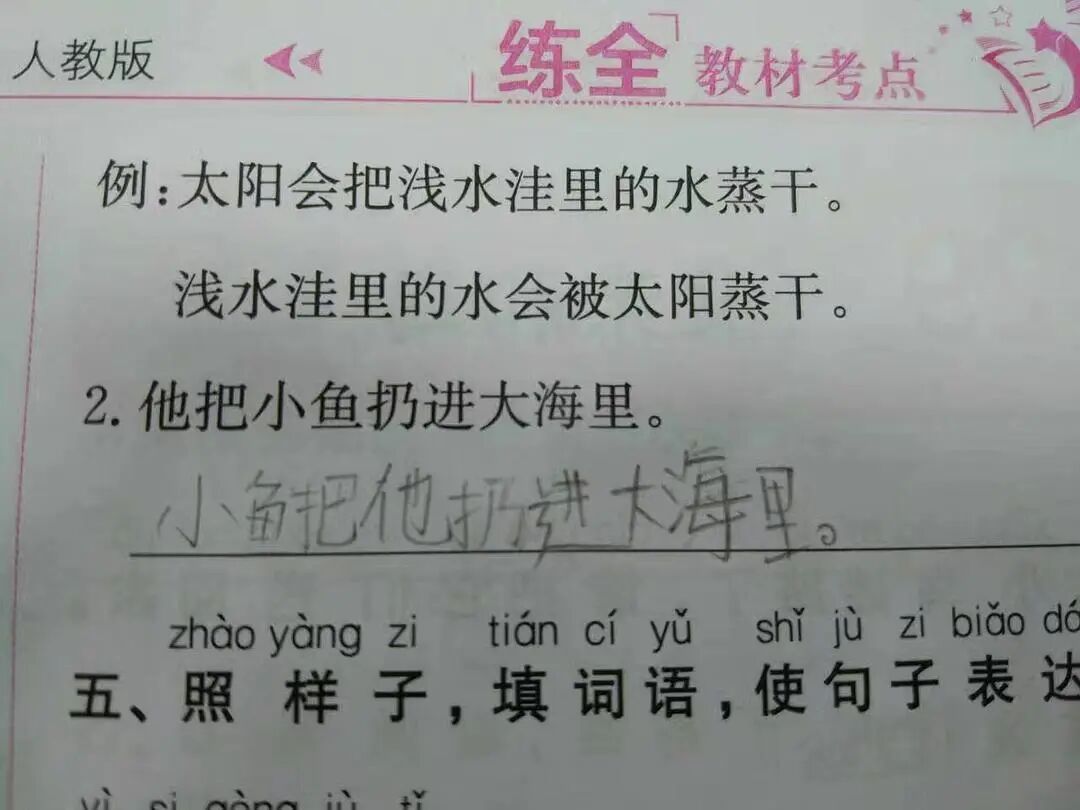 人教版 练全 教材考点
例:太阳会把浅水洼里的水蒸干。
浅水洼里的水会被太阳蒸干。
2. 他把小鱼扔进大海里。
小鱼把他扔进大海里。
zhào yàng zi tián cí yǔ shǐ jù zi biǎo dá
五、照样子,填词语,使句子表达